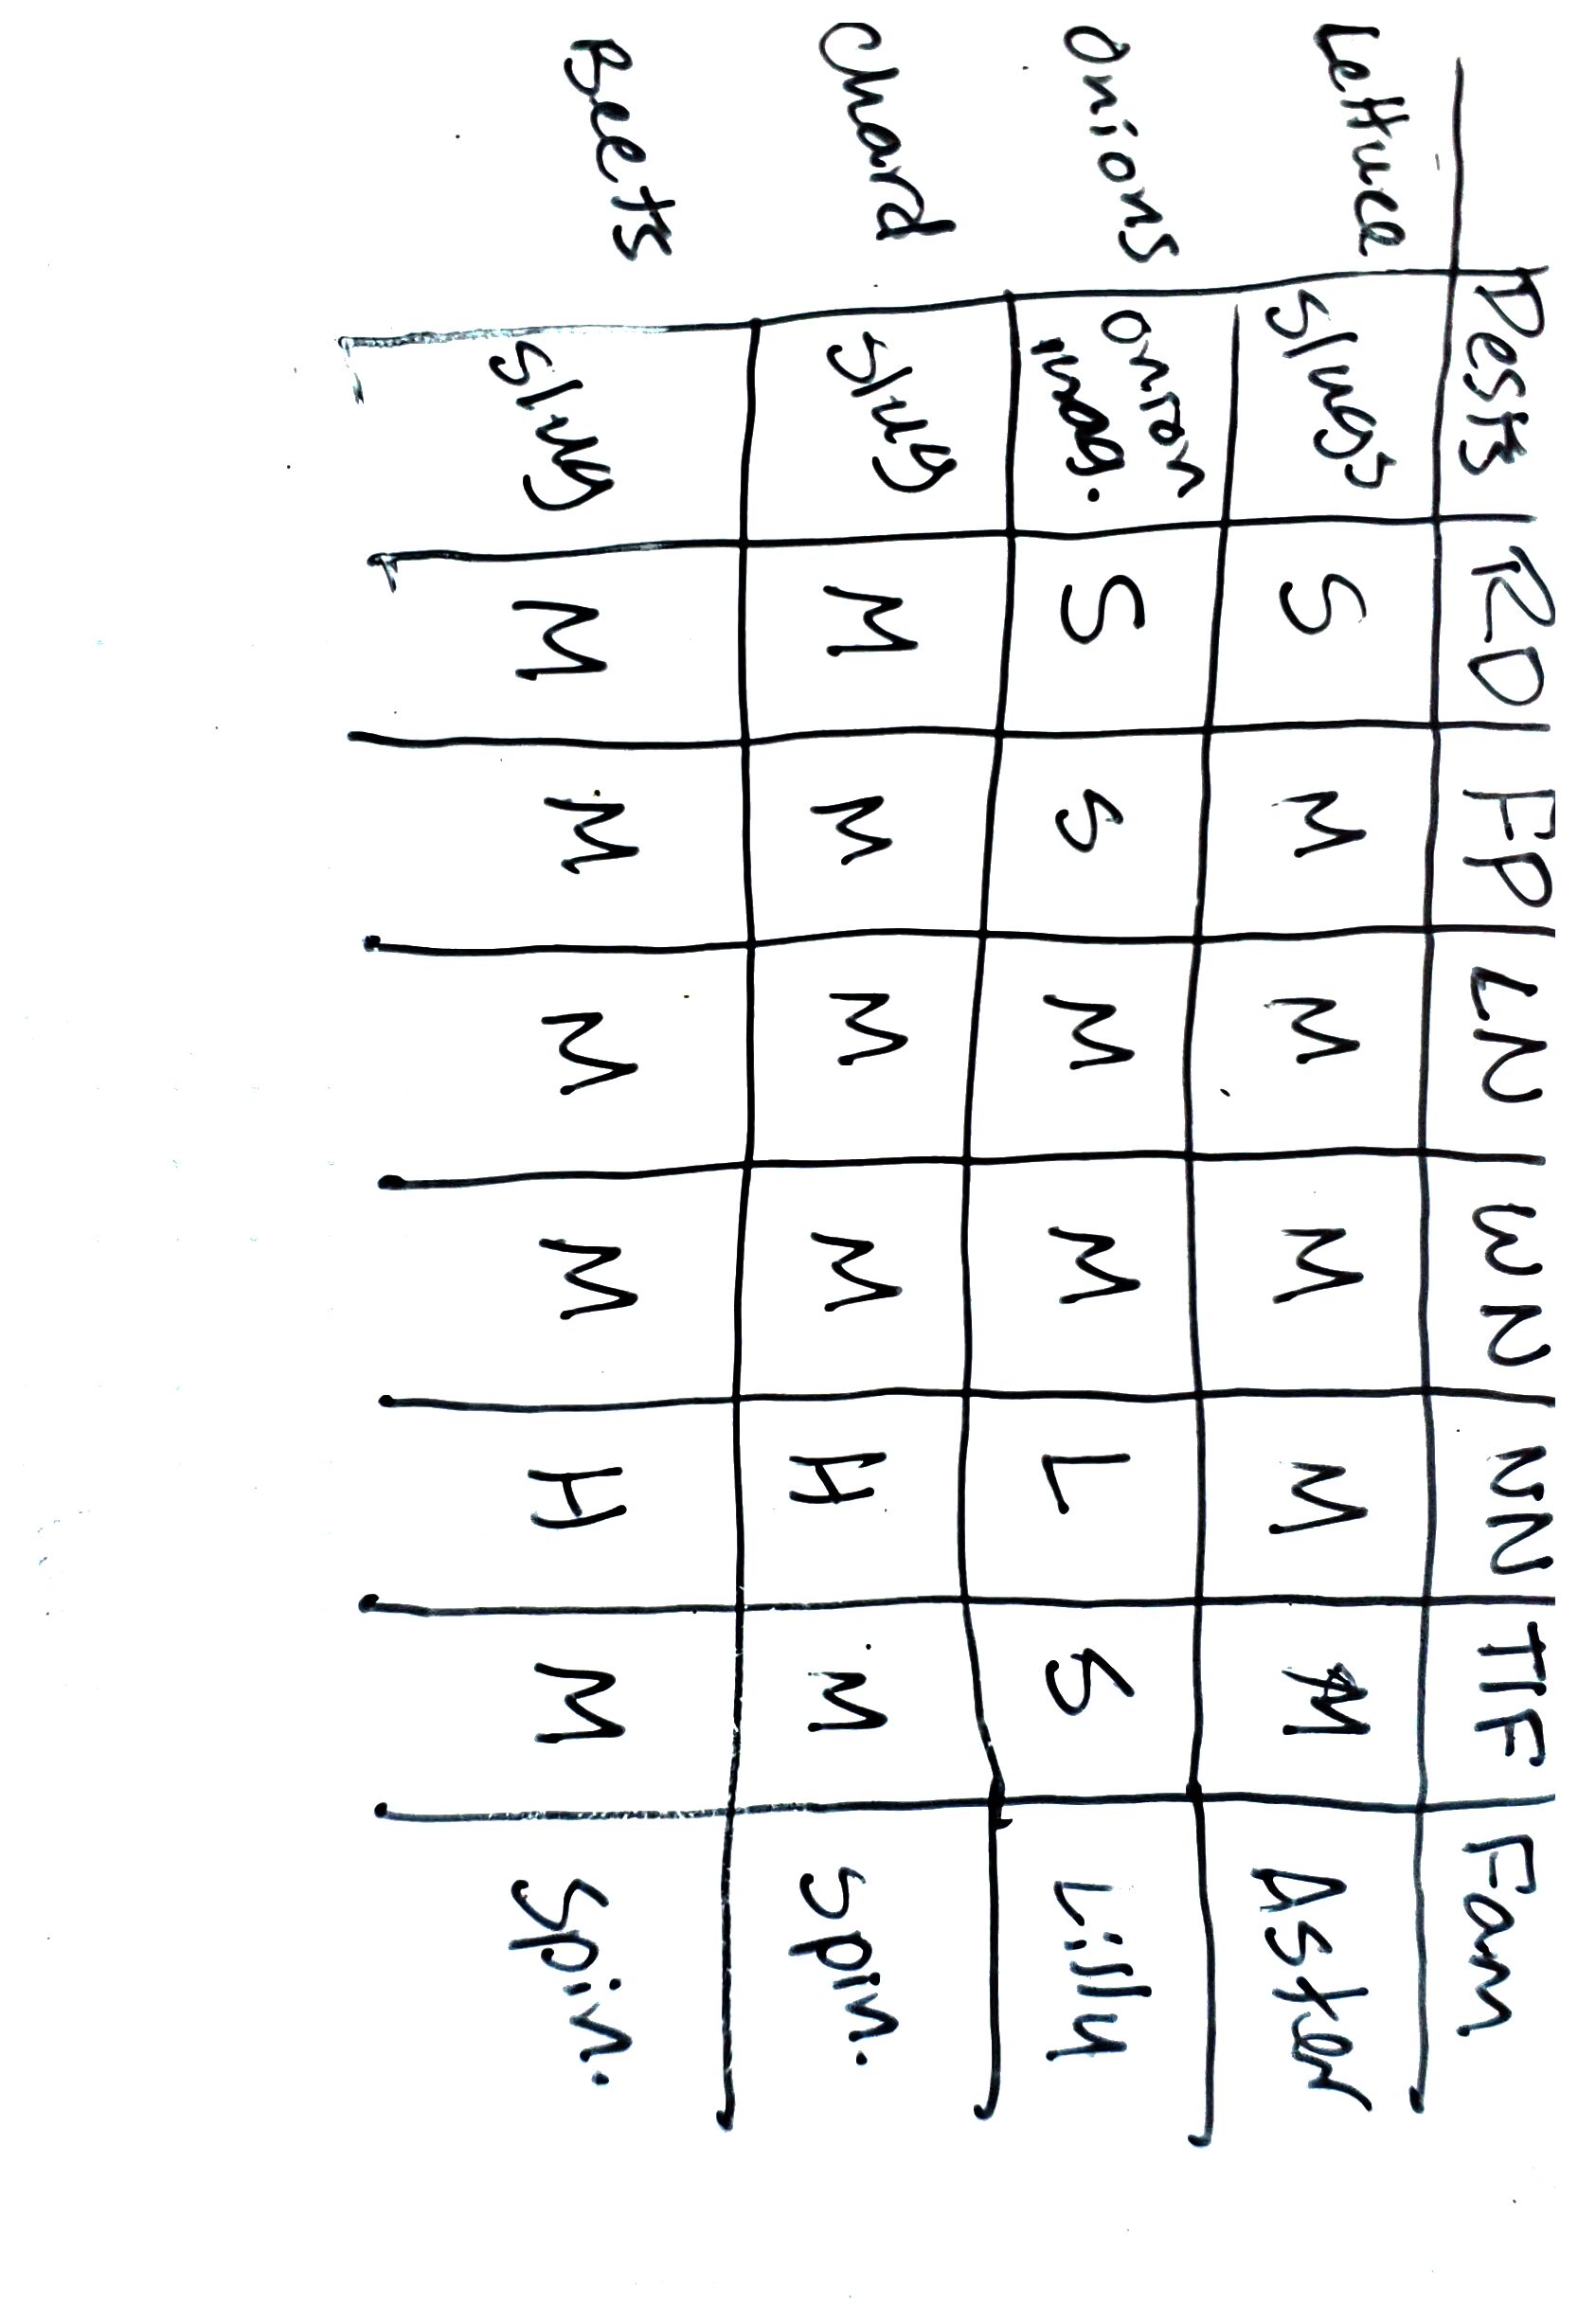 Pests RD FP LN WN NN TIF Fam
Lettuce Slugs S M M M M M Aster
Onions Onion S S M M L S Lilly
mag.
Chard Slug M M M M H M Spin.
Beets Slug M M M M H M Spin.